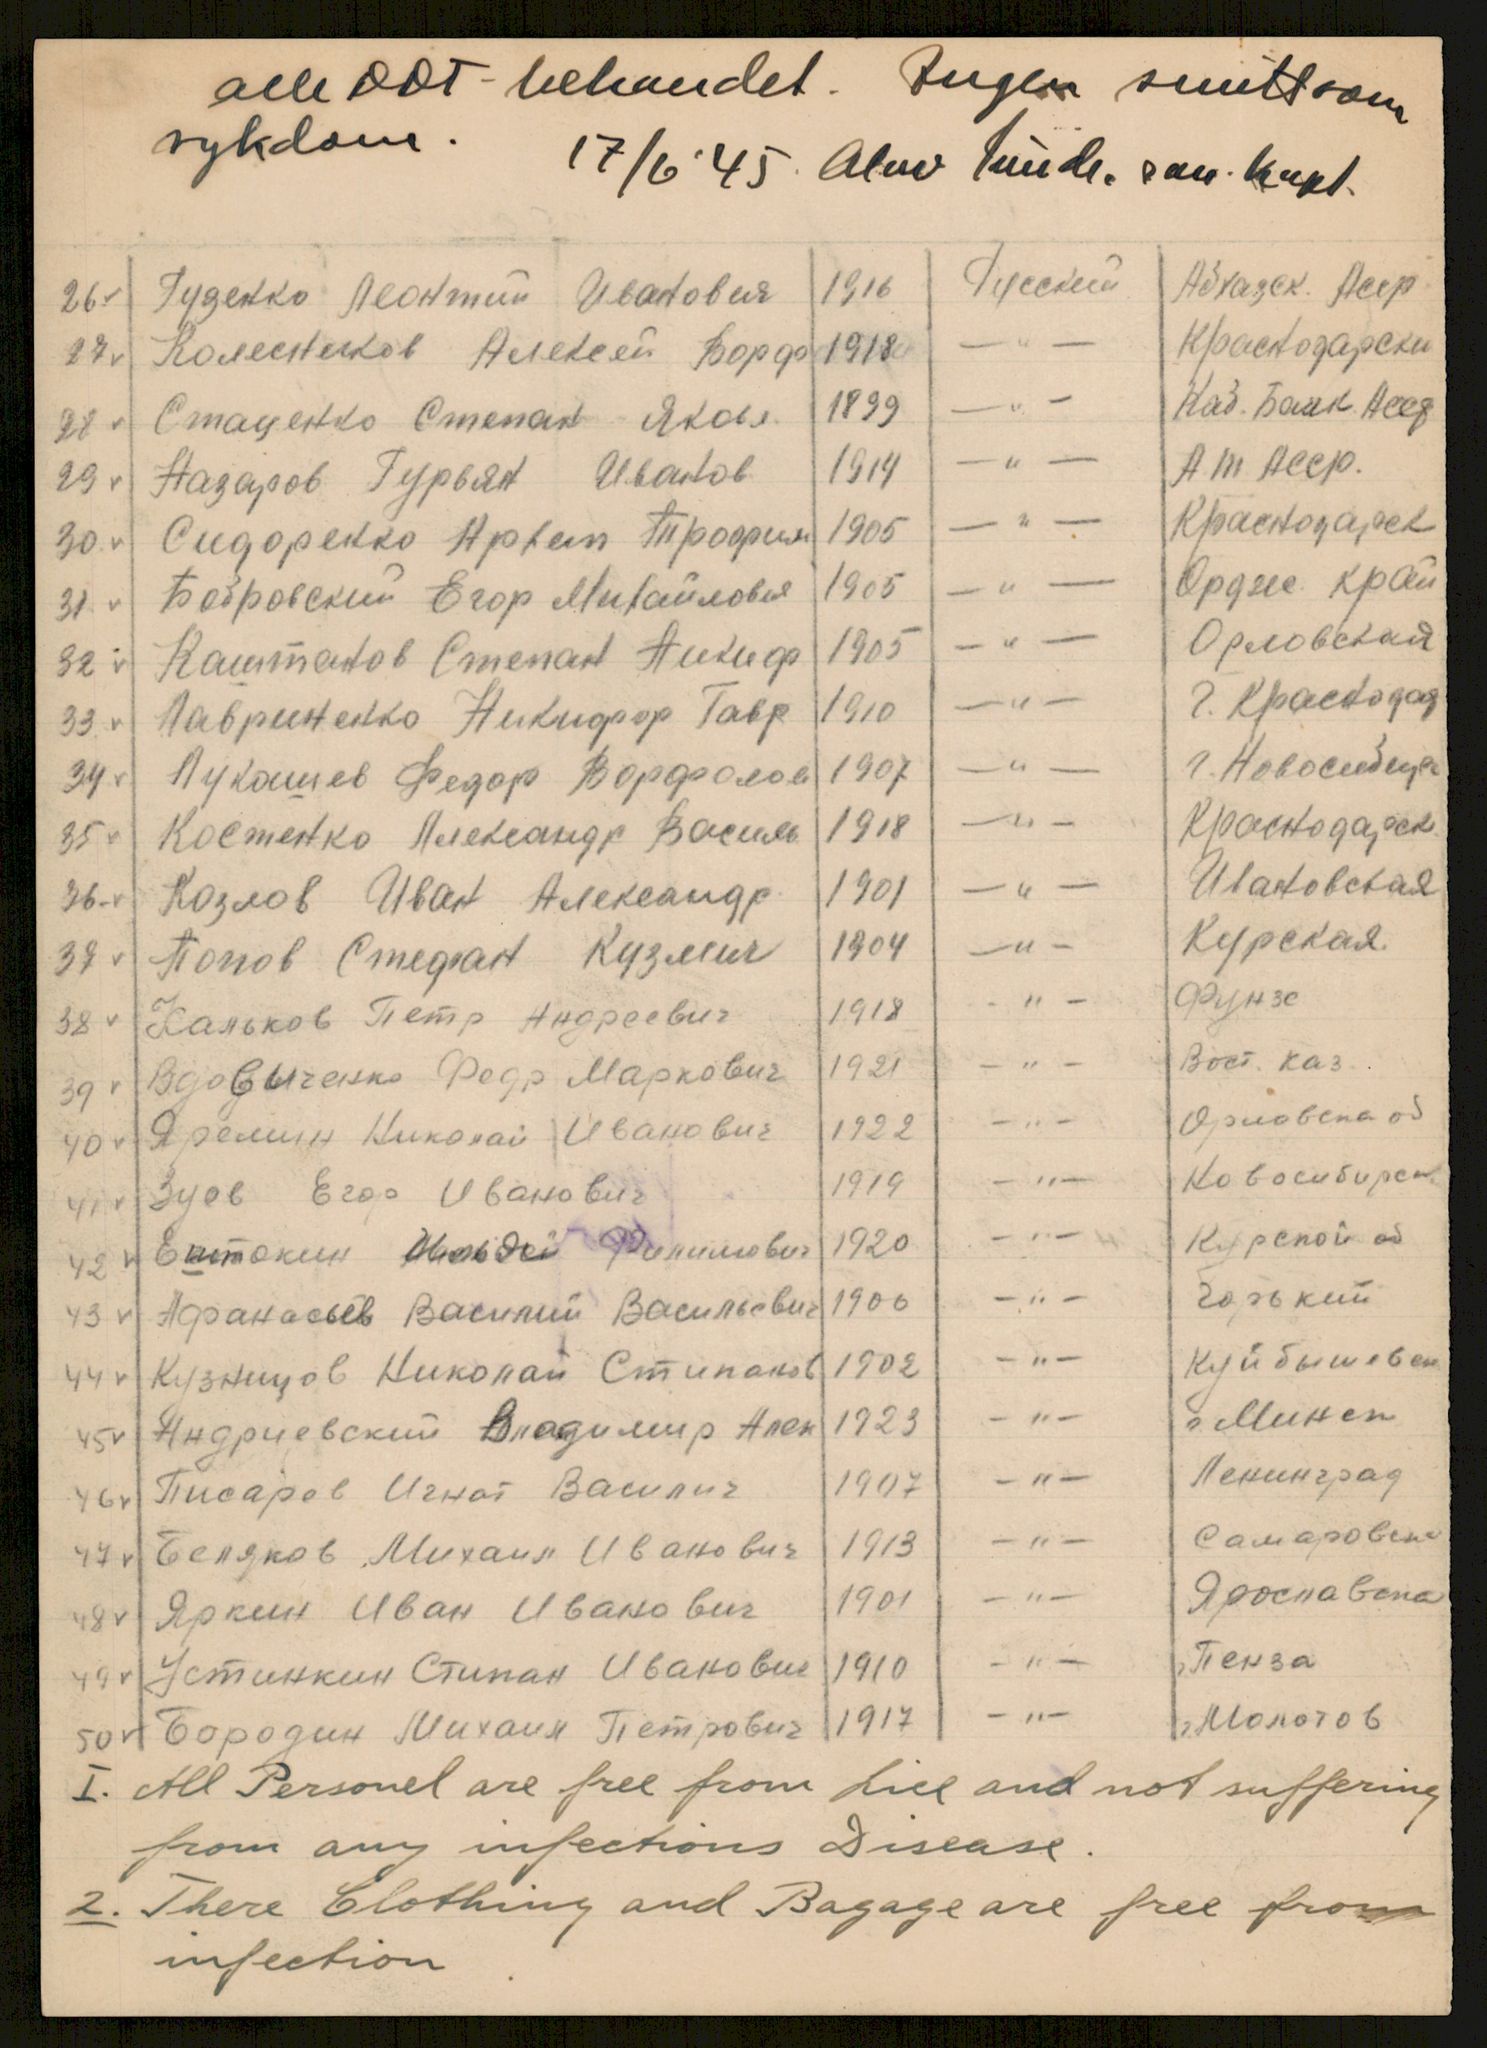 alle DDT-behandet. Ingen smittsom
sykdom. 17/6 '45. san. kapt.
26 v Гузенко Леонтий Иванович 1916 Русский Абхазск. Асср
27 v Колесников Алексей Ворф 1918 — " — Краснодарски
28 v Стаценко Степан Яковл 1899 — " — Каб. Балк. Асср
29 v Назаров Гурьян Иванов 1914 — " — А т Асср.
30 v Сидоренко Архип Трофим 1905 — " — Краснодарск
31 v Бобровский Егор Михайлович 1905 — " — Ордже край
32 v Каштанов Степан Никиф 1905 — " — Орловская
33 v Лавриненко Никифор Гавр 1910 — " — г. Краснодар
34 v Лукашев Федор Ворфолом 1907 — " — г. Новосибирс
35 v Костенко Александр Василь 1918 — " — Краснодарск
36 v Козлов Иван Александр 1901 — " — Ивановская
37 v Попов Стефан Кузмич 1904 — " — Курская.
38 v Кальков Петр Андреевич 1918 - " - Фунзе
39 v Вдовыченко Федр Маркович 1921 - " - Вост. каз.
40 v Яремин Николай Иванович 1922 - " - Орловска об
41 v Зуев Егор Иванович 1919 - " - Новосибирск
42 v Ештокин Филимович 1920 - " - Курской об
43 v Афанасьев Василий Васильевич 1906 - " - Горький
44 v Кузницов Николай Стипанов 1902 - " - Куйбышевск
45 v Андриевский Владимир Алек 1923 - " - г Минск
46 v Писарев Игнат Василич 1907 - " - Ленинград
47 v Беляков Михаил Иванович 1913 - " - Самаровска
48 v Яркин Иван Иванович 1901 - " - Ярославска
49 v Устинкин Стипан Иванович 1910 - " - г Пенза
50 v Бородин Михаил Петрович 1917 - " - г Молотов
I. All Personel are free from Lice and not suffering
from any infections Disease.
2. There Clothing and Bagage are free from
infection.